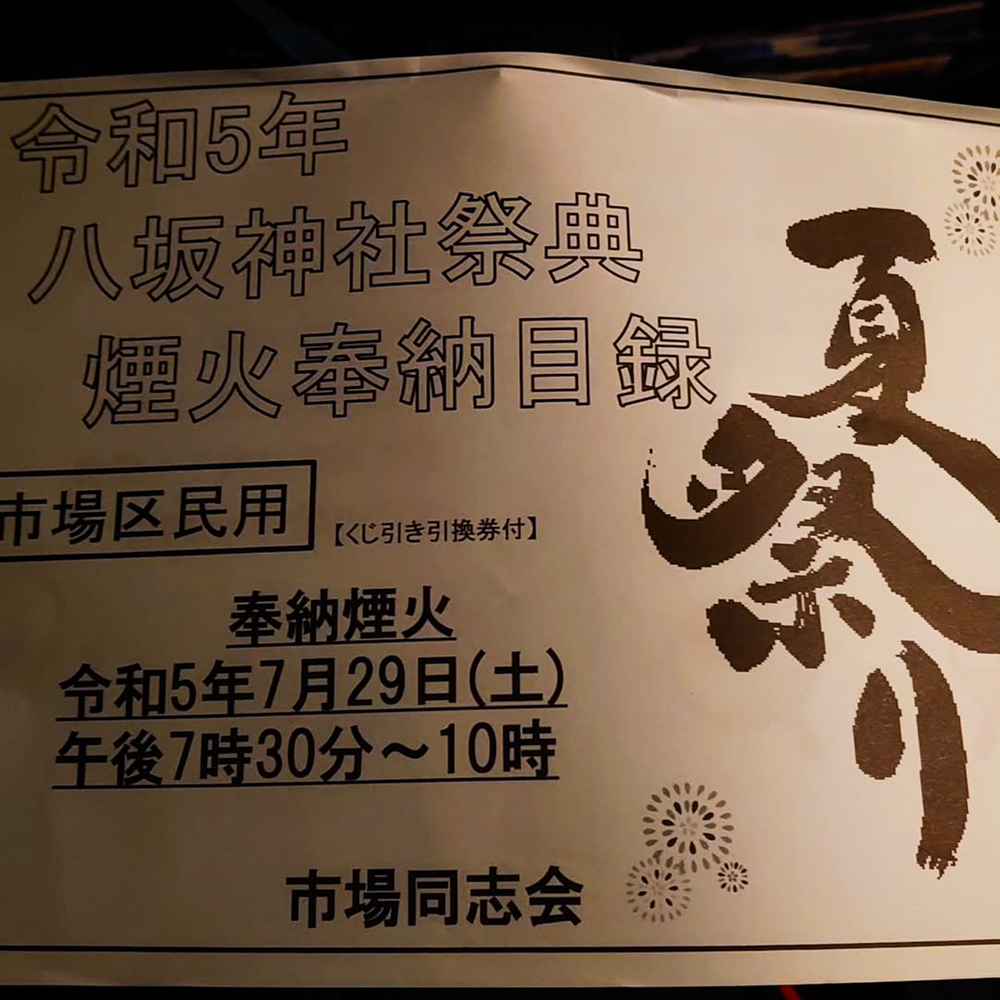 令和5年
八坂神社祭典
煙火奉納目録
夏祭り
市場区民用
【くじ引き引換券付】
奉納煙火
令和5年7月29日(土)
午後7時30分～10時
市場同志会